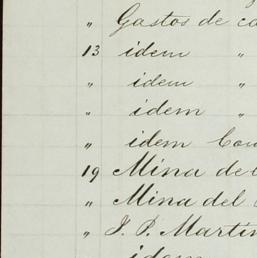 " Gastos de
13 idem "
" idem "
" idem "
" idem
19 Mina del
" Mina del
" J. P. Martin
idem